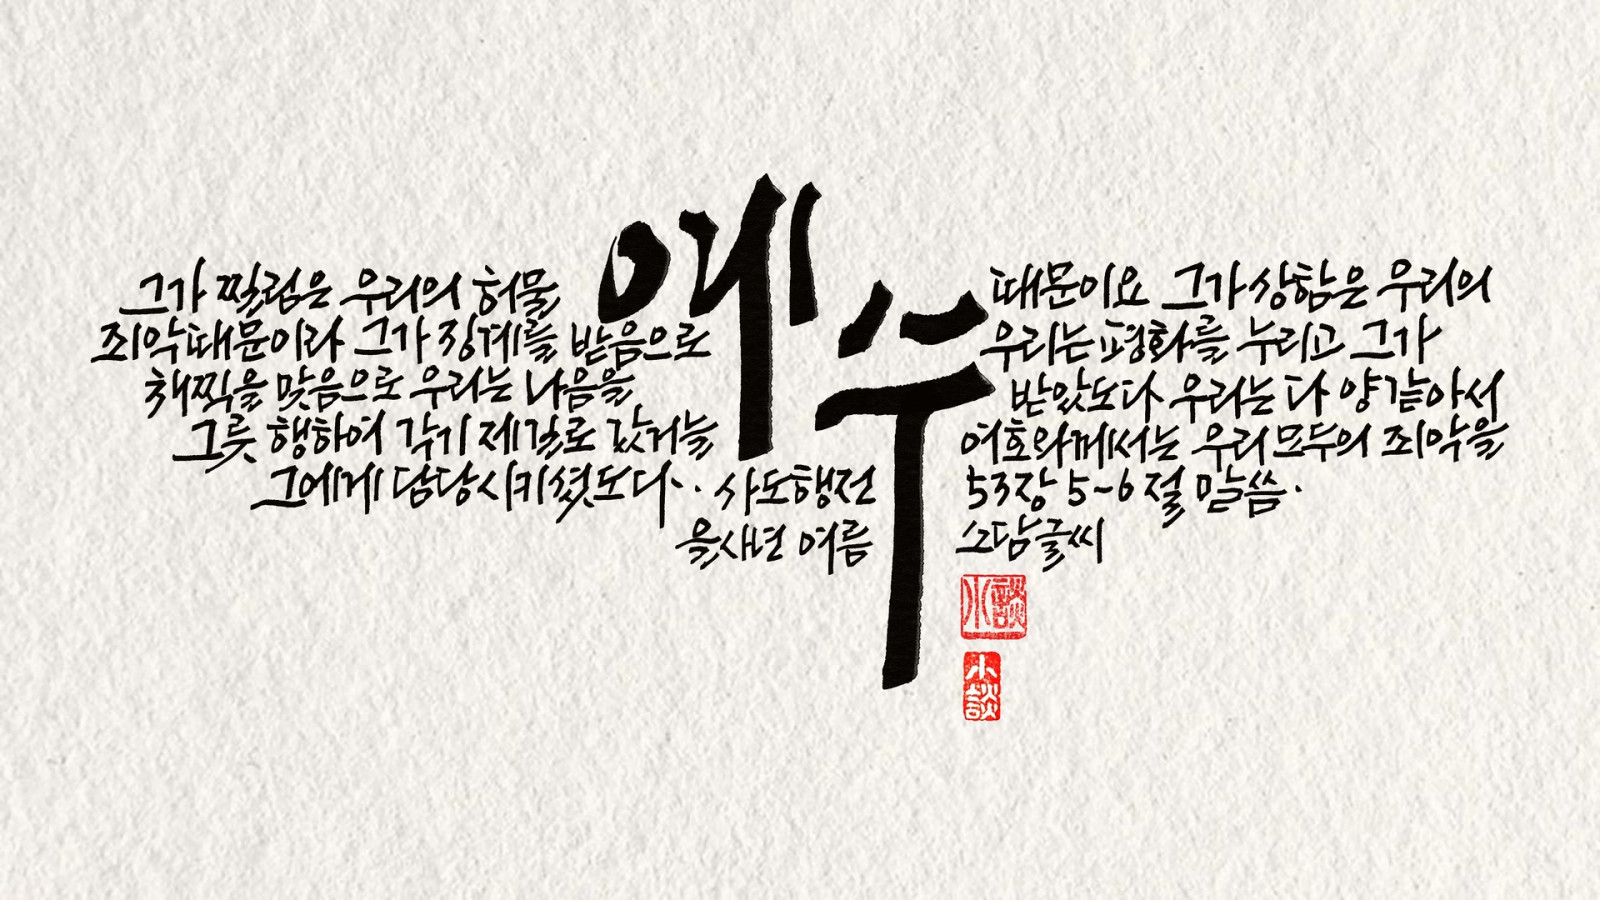 예수
그가 찔림은 우리의 허물 때문이요 그가 상함은 우리의
죄악 때문이라 그가 징계를 받음으로 우리는 평화를 누리고 그가
채찍을 맞음으로 우리는 나음을 받았도다 우리는 다 양 같아서
그릇 행하여 각기 제 길로 갔거늘 여호와께서는 우리 모두의 죄악을
그에게 담당시키셨도다.. 사도행전 53장 5~6절 말씀.
을사년 여름 소담글씨
小談
小談